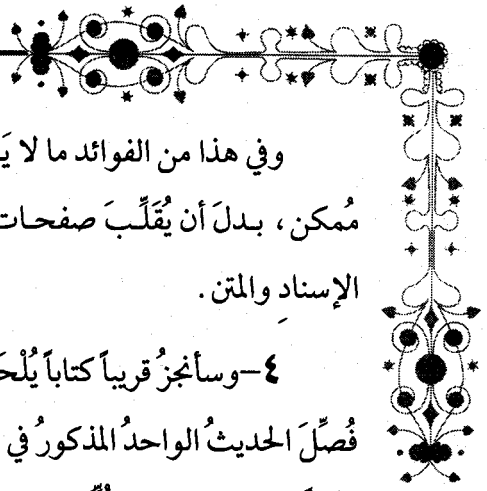 وفي هذا من الفوائد ما لا
مُمكن ، بـدلَ أن يُقَلِّبَ صفحـات
الإسنادِ والمتن .
٤-وسأنجزُ قريباً كتاباً
فُصِّلَ الحديثُ الواحدُ المذكورُ في